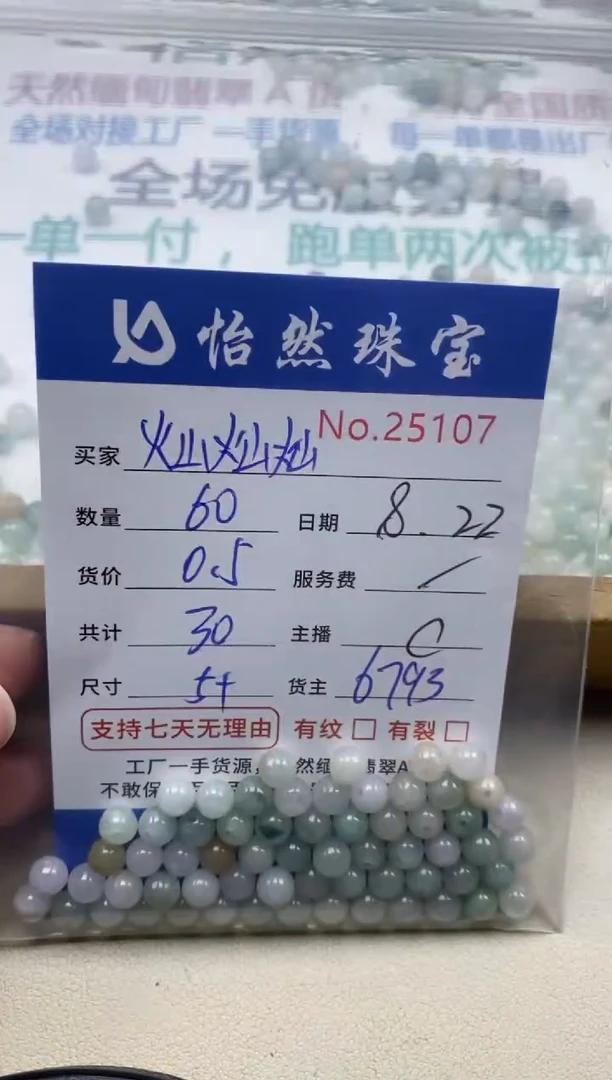 天然缅甸翡翠A货
全国质
全场对接工厂 一手货源,
单一付, 跑单两次被拉
怡然珠宝
No.25107
买家 灿灿灿
数量 60 日期 8.22
货价 0.5 服务费 /
共计 30 主播 C
尺寸 5+ 货主 6793
支持七天无理由 有纹 □ 有裂 □
工厂一手货源, 然缅 翡翠A
不敢保